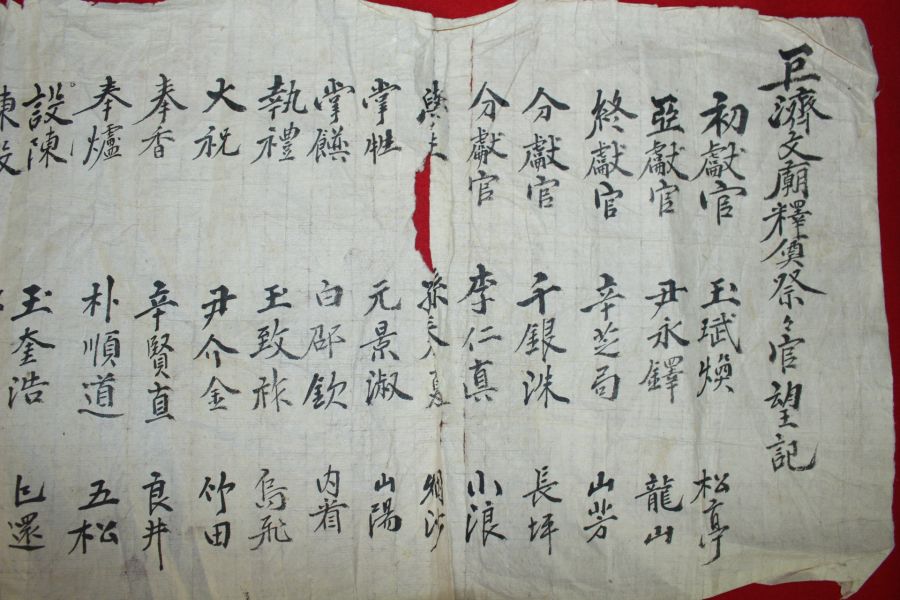 巨濟文廟釋奠祭々官望記
初獻官 玉珷煥 松亭
亞獻官 尹永鐸 龍山
終獻官 辛芝局 山芳
分獻官 千銀洙 長坪
分獻官 李仁真 小浪
孫
掌牲 元景淑 山陽
掌饌 白邵欽 內看
執禮 玉致祚 烏飛
大祝 尹介金 竹田
奉香 辛賢直 良井
奉爐 朴順道 五松
設陳 玉奎浩 還
陳設